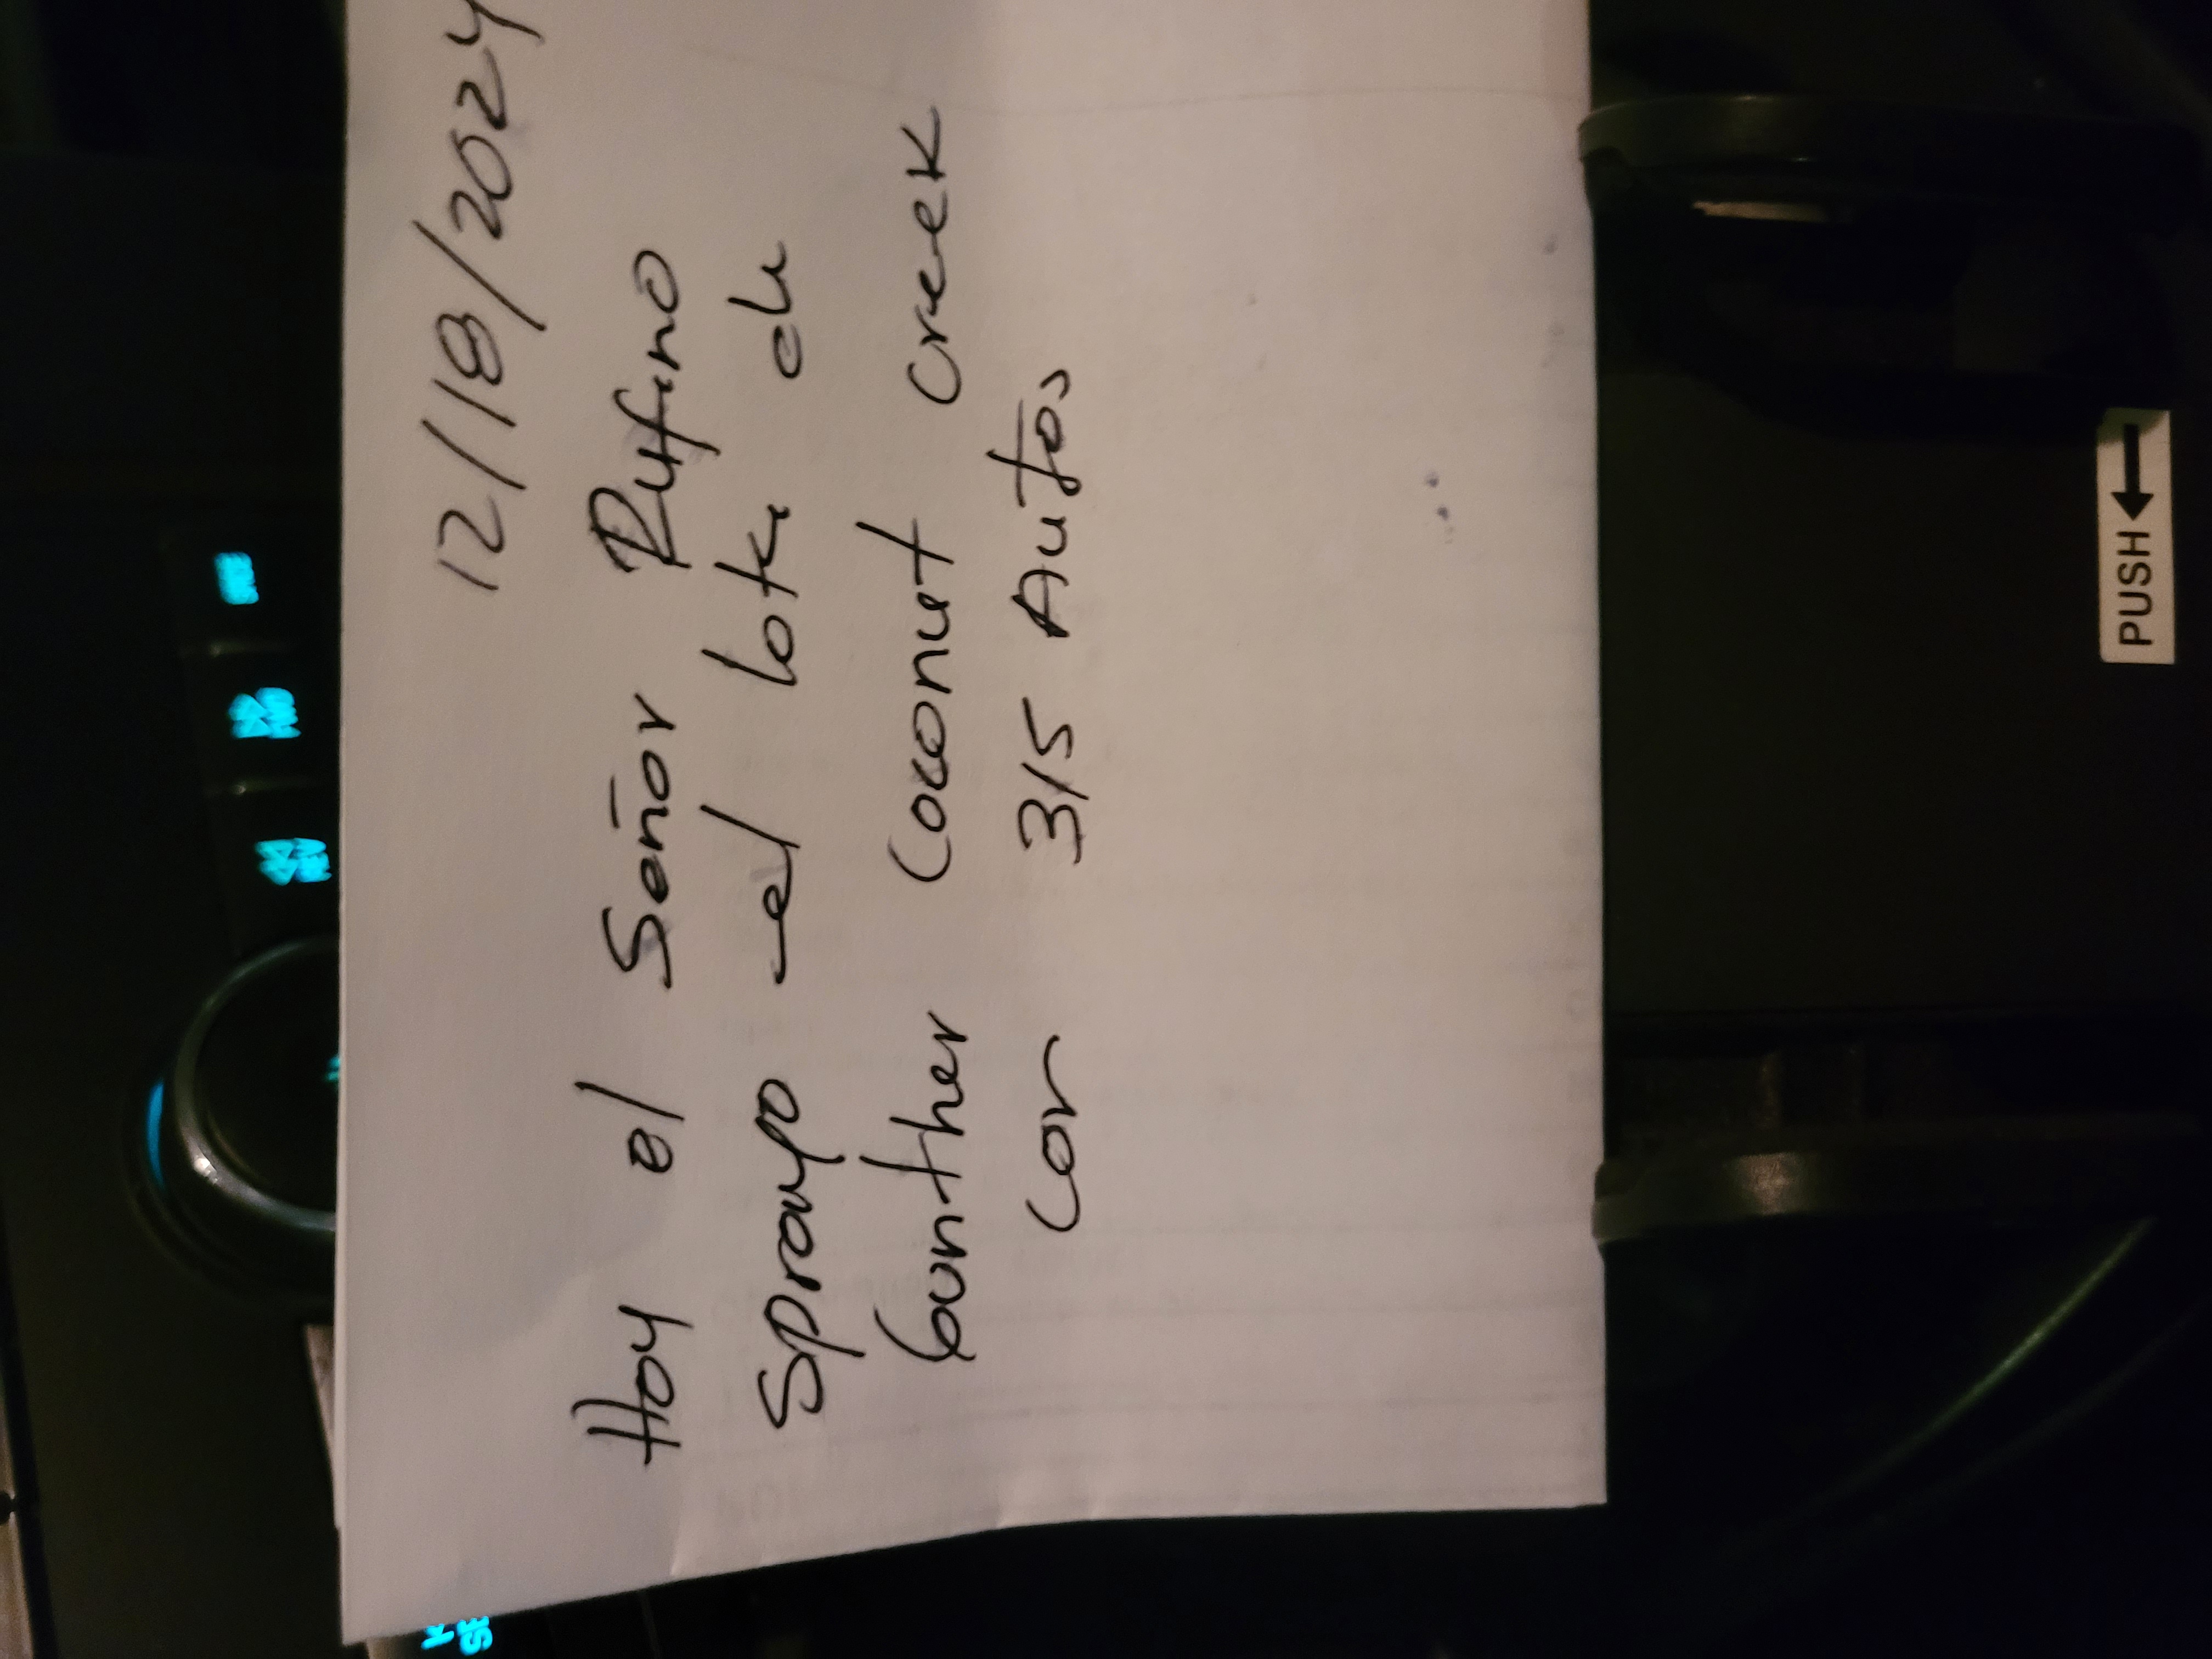 12/18/2024
Hoy el Señor Rufino
Sprayo el lote de
Gunther Coconut Creek
Con 315 Autos
PUSH